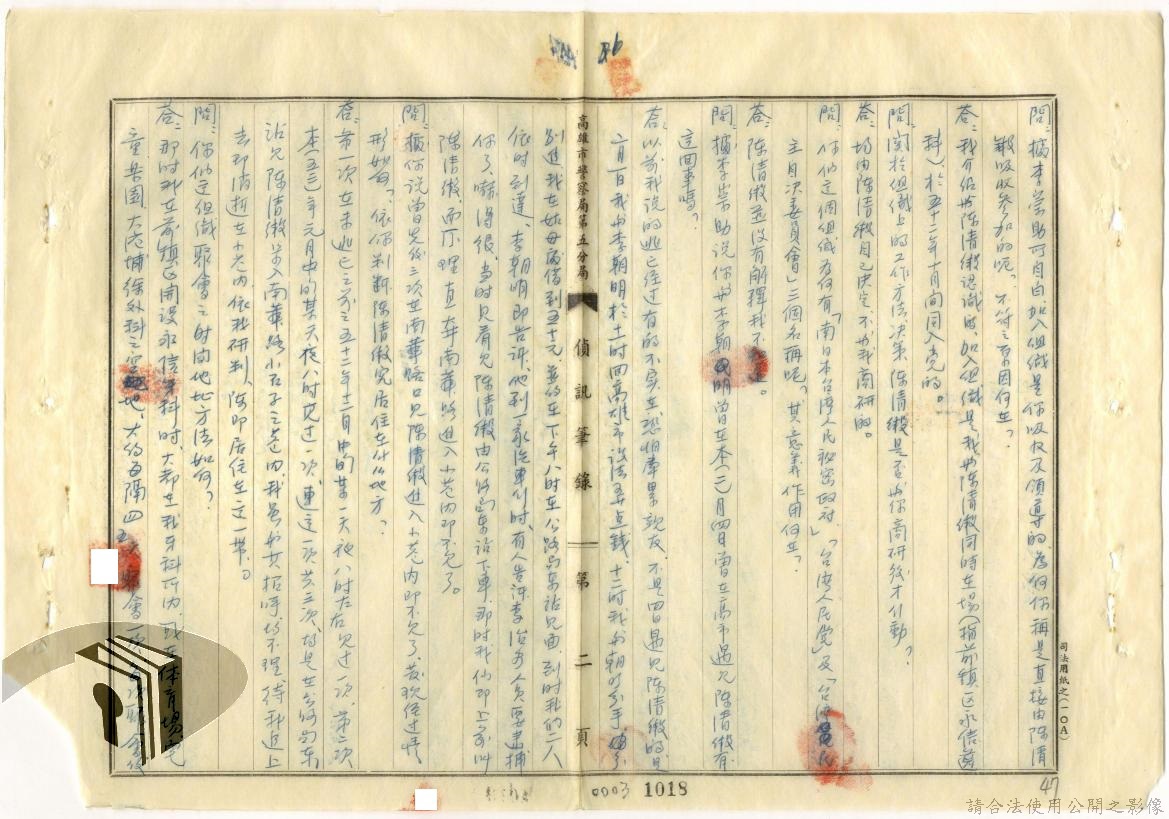 46
問:據李崇助可自白,加入組織是你吸收及領導的,為何你稱是直接由陳清
緞吸收參加的呢。不符之原因何在?
答:我介紹與陳清緞認識的,加入組織是我與陳清緞同時在場(指前鎮區永信齒
科)於五十二年十月間同入党的。
問:関於組織上的工作方法決策,陳清緞是否與你商研後才行動?
答:均由陳清緞自己決定,不與我商研的。
問:你們這個組織為何有「南日本台湾人民祕密政府」「台湾人民党」及「台湾
主自決委員會」三個名稱呢?其意義作用何在?
答:陳清緞並沒有解釋我不
問:據李崇助說你與李朝明曾在本(二)月四日曾在高市遇見陳清緞有
這回事嗎?
答:以前我說的逃亡經过有的不实在,恐怕牽累親友,不是四日遇見陳清緞的是
二月一日我與李朝明於十二時回高雄市設法弄点錢,十二時我與朝明分手
別進我在姑母處借到五十元並約在下午八時在公路局東站見面,到時我們二人
依時到達,李朝明即告訴,他到一家汽車行時,有人告訴李治安人員要逮捕
你了,嚇得很,当時見看見陳清緞由公路局東站下車,那時我們即上前叫
陳清緞,而不理直奔南華路進入小巷內即不見了。
問:據你說曾先後三次在南華路口見陳清緞進入小巷內即不見了,發現經过情
形如何?依你判斷陳清緞究居住在什么地方?
答:第一次在未逃亡之前之五十二年十二月中的某一天夜八時左右見过一次,第二次
本(五三)年元月中的某天夜八时見过一次,連這一次共三次,均是在公路局東
站見陳清緞步入南華路小石子之巷內,我虽與其招呼均不理,待我追上
去即消逝在小巷內,依我研判,陳即居住在這一帶。
問:你們這組織聚會之时間地點方法如何?
答:那时我在前鎮區開設永信牙科时,大都在我牙科所內,或在体育場
童楽園、大港埔徐外科之空地,大約每隔四五天聚會一次
高雄市警察局第五分局
偵訊筆錄
第二頁
司法用紙之(一〇A)
0003 1018
47
請合法使用公開之影像